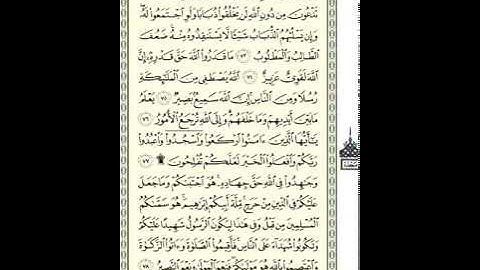 تَدْعُونَ مِن دُونِ ٱللَّهِ لَن يَخْلُقُوا۟ ذُبَابًا وَلَوِ ٱجْتَمَعُوا۟ لَهُۥ
وَإِن يَسْلُبْهُمُ ٱلذُّبَابُ شَيْـًٔا لَّا يَسْتَنقِذُوهُ مِنْهُ ۚ ضَعُفَ
ٱلطَّالِبُ وَٱلْمَطْلُوبُ ٧٣ مَا قَدَرُوا۟ ٱللَّهَ حَقَّ قَدْرِهِۦٓ ۗ إِنَّ
ٱللَّهَ لَقَوِىٌّ عَزِيزٌ ٧٤ ٱللَّهُ يَصْطَفِى مِنَ ٱلْمَلَـٰٓئِكَةِ
رُسُلًا وَمِنَ ٱلنَّاسِ ۚ إِنَّ ٱللَّهَ سَمِيعٌۢ بَصِيرٌ ٧٥ يَعْلَمُ
مَا بَيْنَ أَيْدِيهِمْ وَمَا خَلْفَهُمْ ۗ وَإِلَى ٱللَّهِ تُرْجَعُ ٱلْأُمُورُ ٧٦
يَـٰٓأَيُّهَا ٱلَّذِينَ ءَامَنُوا۟ ٱرْكَعُوا۟ وَٱسْجُدُوا۟ وَٱعْبُدُوا۟
رَبَّكُمْ وَٱفْعَلُوا۟ ٱلْخَيْرَ لَعَلَّكُمْ تُفْلِحُونَ ۩ ٧٧
وَجَـٰهِدُوا۟ فِى ٱللَّهِ حَقَّ جِهَادِهِۦ ۚ هُوَ ٱجْتَبَىٰكُمْ وَمَا جَعَلَ
عَلَيْكُمْ فِى ٱلدِّينِ مِنْ حَرَجٍ ۚ مِّلَّةَ أَبِيكُمْ إِبْرَٰهِيمَ ۚ هُوَ سَمَّىٰكُمُ
ٱلْمُسْلِمِينَ مِن قَبْلُ وَفِى هَـٰذَا لِيَكُونَ ٱلرَّسُولُ شَهِيدًا عَلَيْكُمْ
وَتَكُونُوا۟ شُهَدَآءَ عَلَى ٱلنَّاسِ ۚ فَأَقِيمُوا۟ ٱلصَّلَوٰةَ وَءَاتُوا۟ ٱلزَّكَوٰةَ
وَٱعْتَصِمُوا۟ بِٱللَّهِ هُوَ مَوْلَىٰكُمْ ۖ فَنِعْمَ ٱلْمَوْلَىٰ وَنِعْمَ ٱلنَّصِيرُ ٧٨